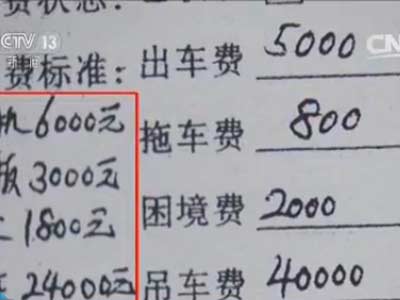 CCTV 13
新闻
费状态:
CN
费标准: 出车费 5000
6000元 拖车费 800
板3000元
1800元 困境费 2000
24000元 吊车费 40000